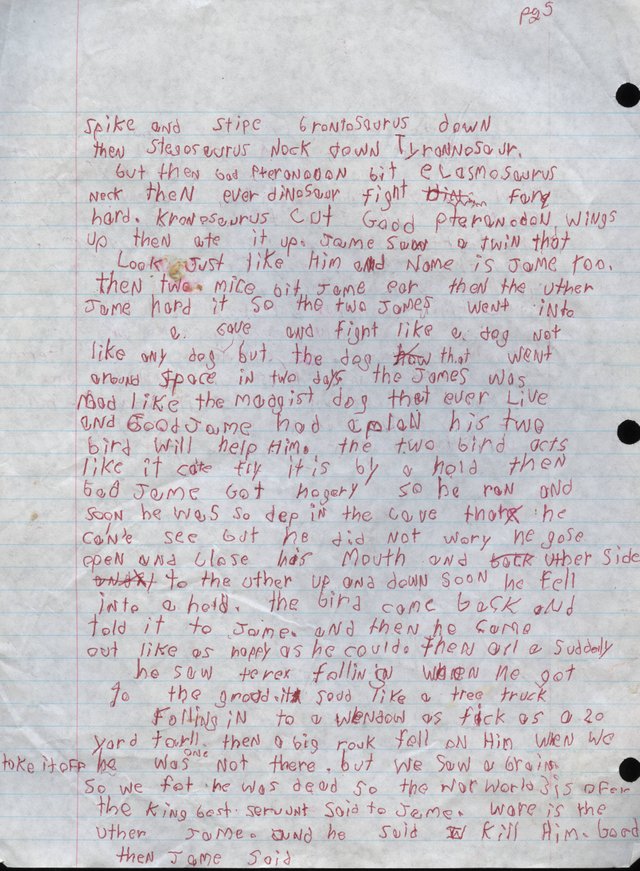 pg 5
Spike and stipe brontosaurus down
then Stegosaurus nock down Tyrannosaur.
but then bad pteranodan bit elasmosaurus
neck then ever dinosaur fight fary
hard. Kronosaurus cut Good pteranodan wings
up then ate it up. Jame saw a twin that
Look Just like Him and Name is Jame too.
then two mice bit Jame ear then the uther
Jame hard it so the two James went into
a cave and fight like a dog not
like any dog but the dog that went
around space in two days the James was
Mad like the madgist dog that ever Live
and Good Jame had a plan his two
bird will help Him. the two bird acts
like it cate fly it is by a hold then
bad Jame Got hogery so he ran and
soon he was so dep in the cave that he
can't see but he did not wory he gose
open and close his Mouth and uther side
to the uther up and down soon he fell
into a hold. the bird came back and
told it to Jame. and then he came
out like as happy as he could. then all a suddly
he saw terex falling when he got
to the groad. it soud like a tree truck
Falling in to a window as fick as a 20
yard tarll. then a big rouk fell on Him when we
take it off he was not there. one but we saw a brain
so we fot he was dead so the War World 3 is ofer
the King best servunt said to Jame. ware is the
uther Jame. and he said I kill Him. Good
then Jame said